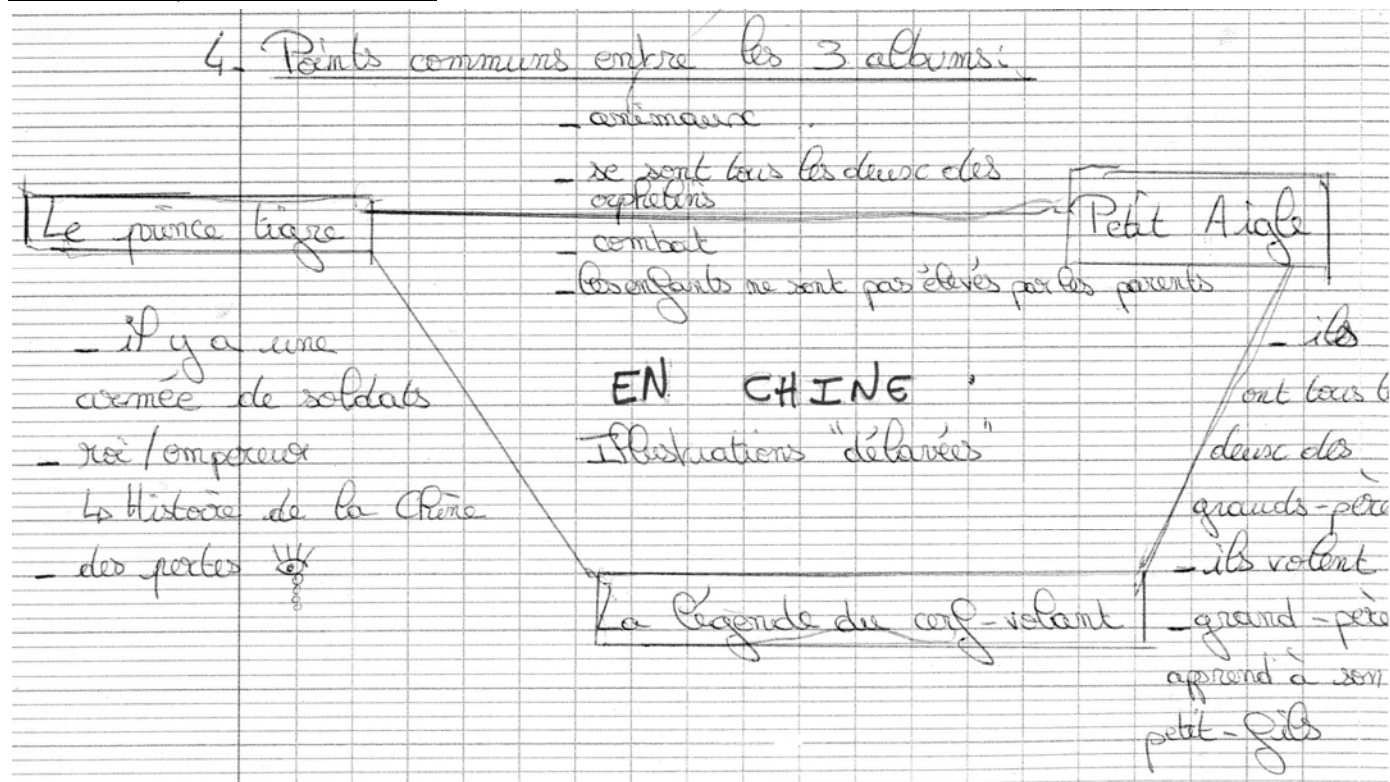 4_ Points communs entre les 3 albums :
_ animaux
_ se sont tous les deux des
orphelins
_ combat
_ les enfants ne sont pas élevés par les parents
Le prince tigre
Petit Aigle
_ il y a une
armée de soldats
_ roi / empereur
↳ Histoire de la Chine
_ des pertes
EN CHINE :
Illustrations "délavées"
_ ils
ont tous l
deux des
grands-père
_ ils volent
_ grand-père
apprend à son
petit-fils
La légende du cerf-volant